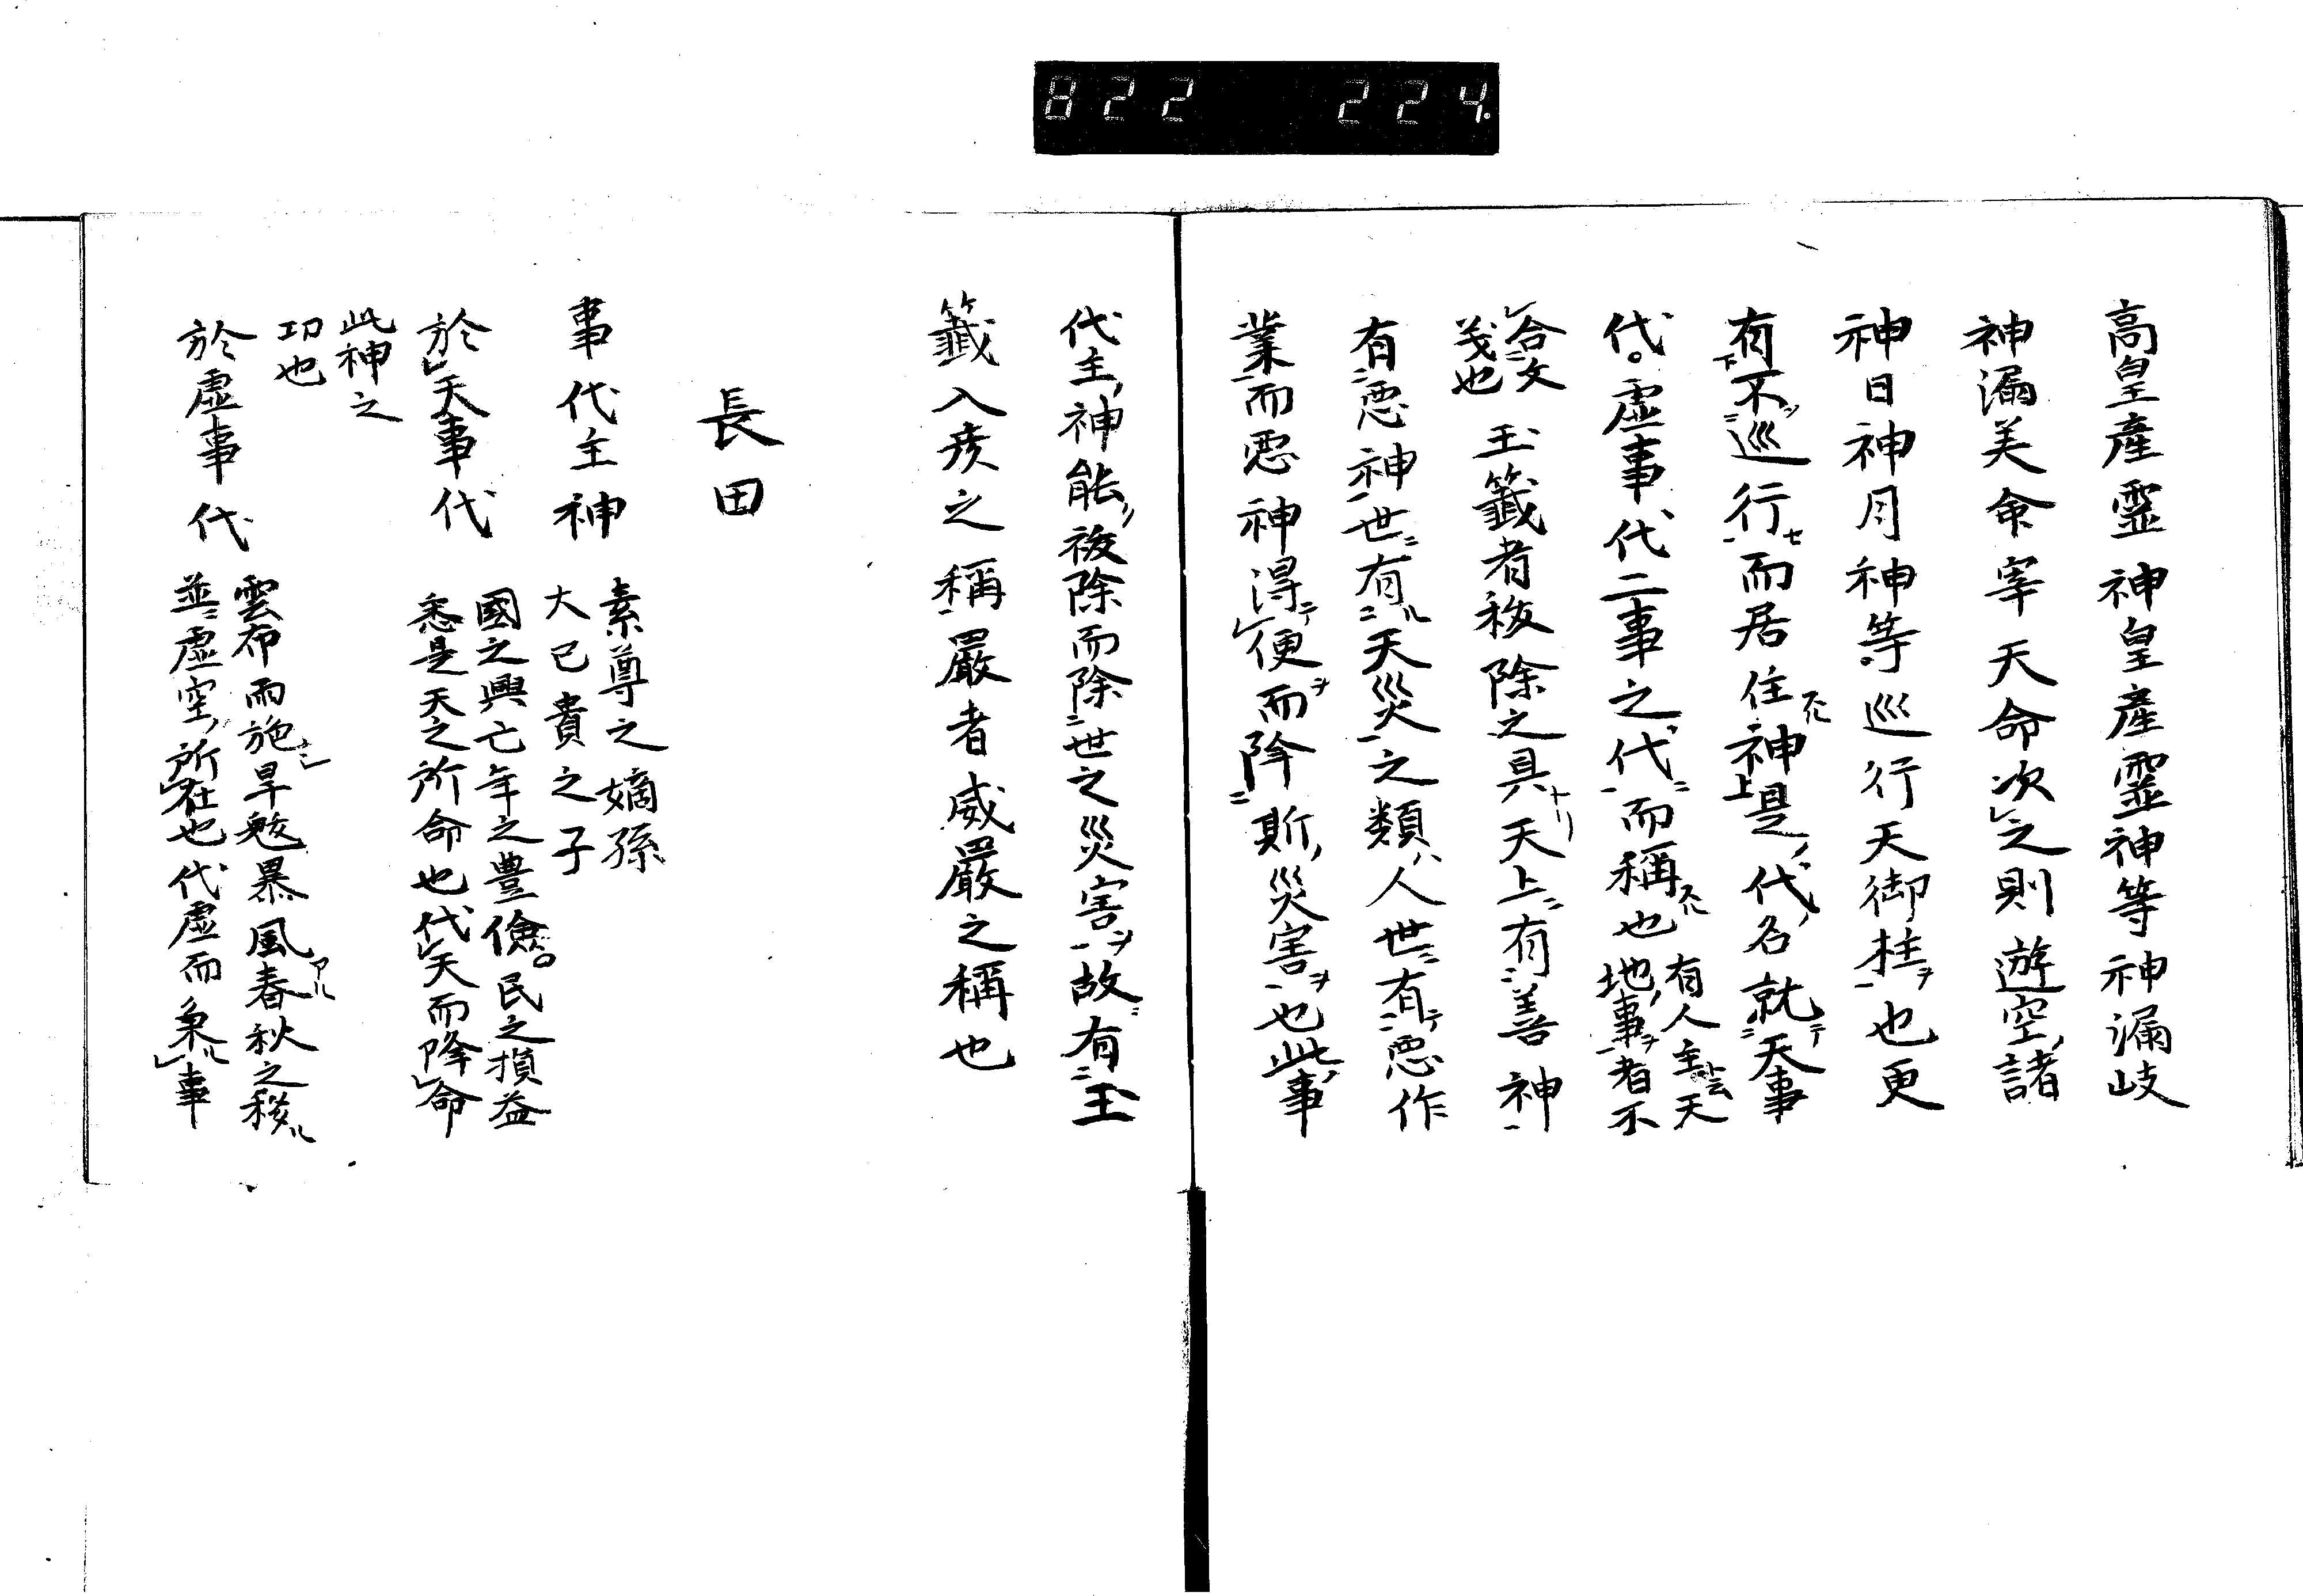 822 224.
高皇產霊神皇產霊神等神漏岐
神漏美命宰天命次之則遊空諸
神日神月神等巡行天御柱ヲ也更
有不巡行セ而居住神是代名就テ天事
代。虛事代二事之代ニ而稱也有人主云天
地事ヲ者不
合文
義也玉籤者祓除之具ナリ天上ニ有善神
有惡神世ニ有ル天災之類ハ人世ニ有テ惡作
業而惡神得テ便ヲ而降斯災害ヲ也此事
代主神能ク祓除而除世之災害ヲ故ニ有玉
籤入彦之稱嚴者威嚴之稱也
長田
事代主神素尊之嫡孫
大己貴之子
於天事代國之興亡年之豊儉。民之損益
悉是天之所命也代天而降命
此神之
功也
於虛事代雲布雨施旱魃暴風春秋之
並虛空所在也代虛而 事